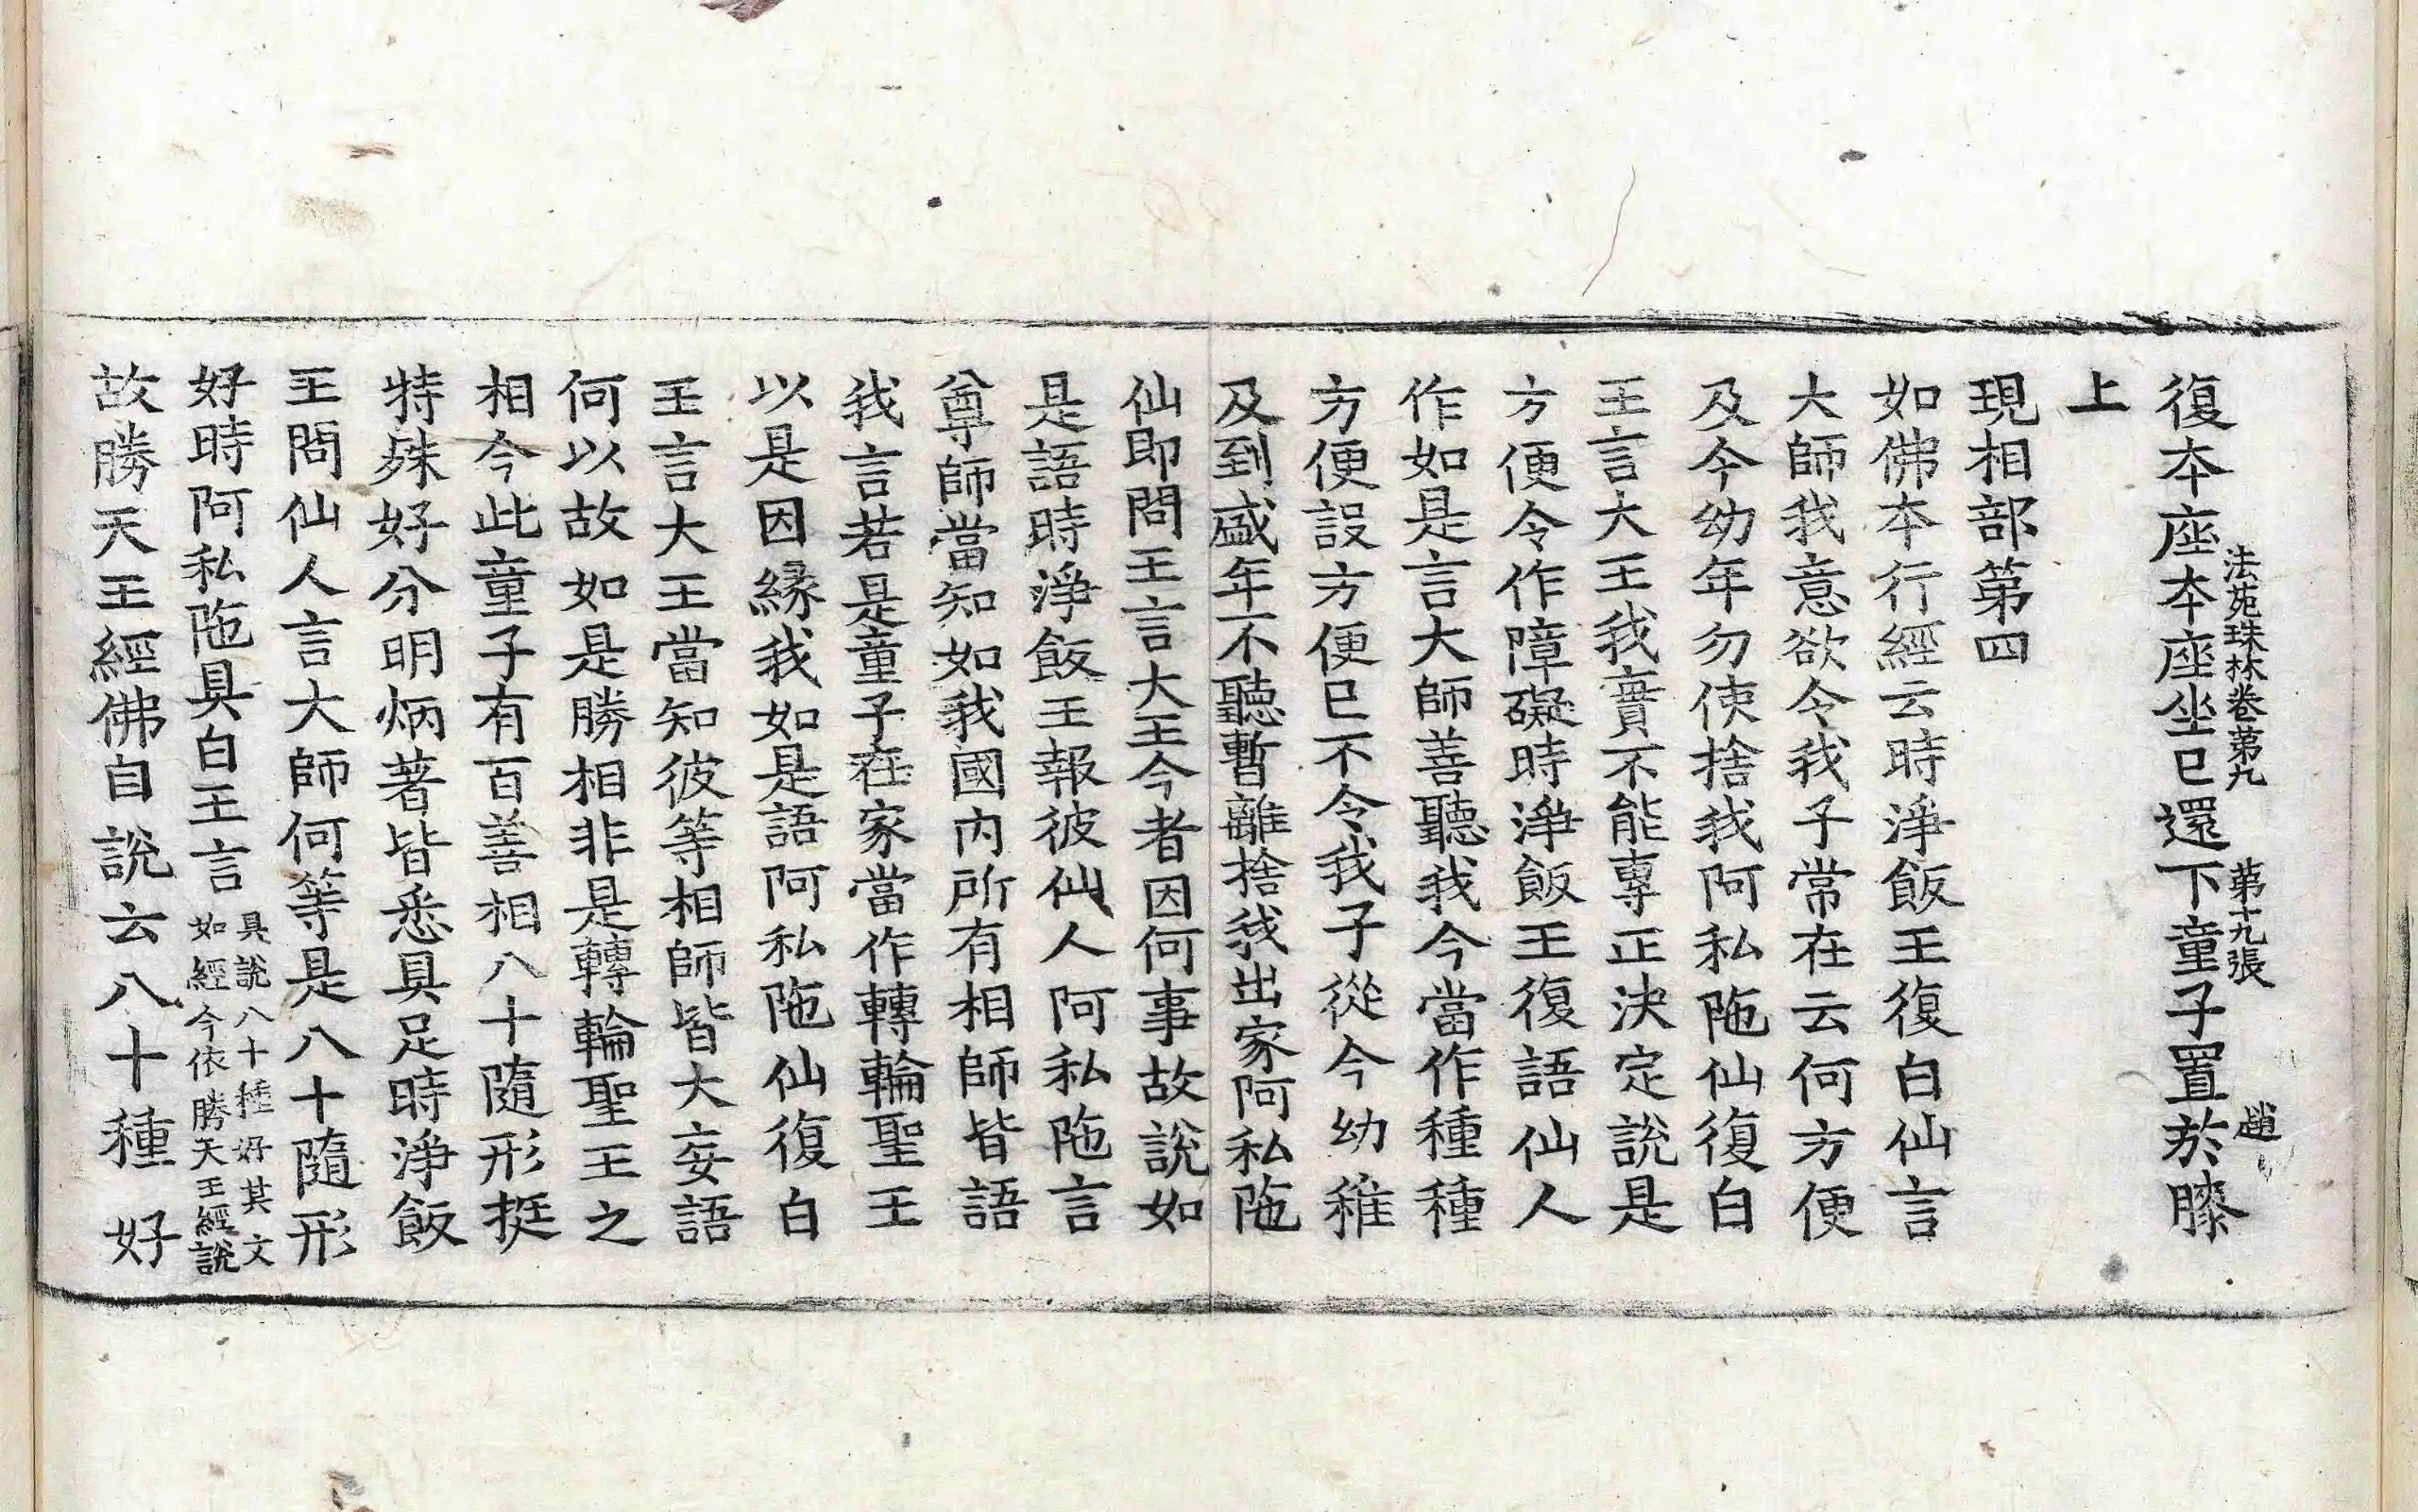 法苑珠林卷第九 第十九張 趙
復本座本座坐已還下童子置於膝
上
現相部第四
如佛本行經云時淨飯王復白仙言
大師我意欲令我子常在云何方便
及今幼年勿使捨我阿私陁仙復白
王言大王我實不能專正決定說是
方便令作障礙時淨飯王復語仙人
作如是言大師善聽我今當作種種
方便設方便已不令我子從今幼稚
及到盛年不聽暫離捨我出家阿私陁
仙即問王言大王今者因何事故說如
是語時淨飯王報彼仙人阿私陁言
尊師當知如我國內所有相師皆語
我言若是童子在家當作轉輪聖王
以是因緣我如是語阿私陁仙復白
王言大王當知彼等相師皆大妄語
何以故如是勝相非是轉輪聖王之
相今此童子有百善相八十隨形挺
特殊好分明炳著皆悉具足時淨飯
王問仙人言大師何等是八十隨形
好時阿私陁具白王言
具說八十種好其文
如經今依勝天王經說
故勝天王經佛自說云八十種好